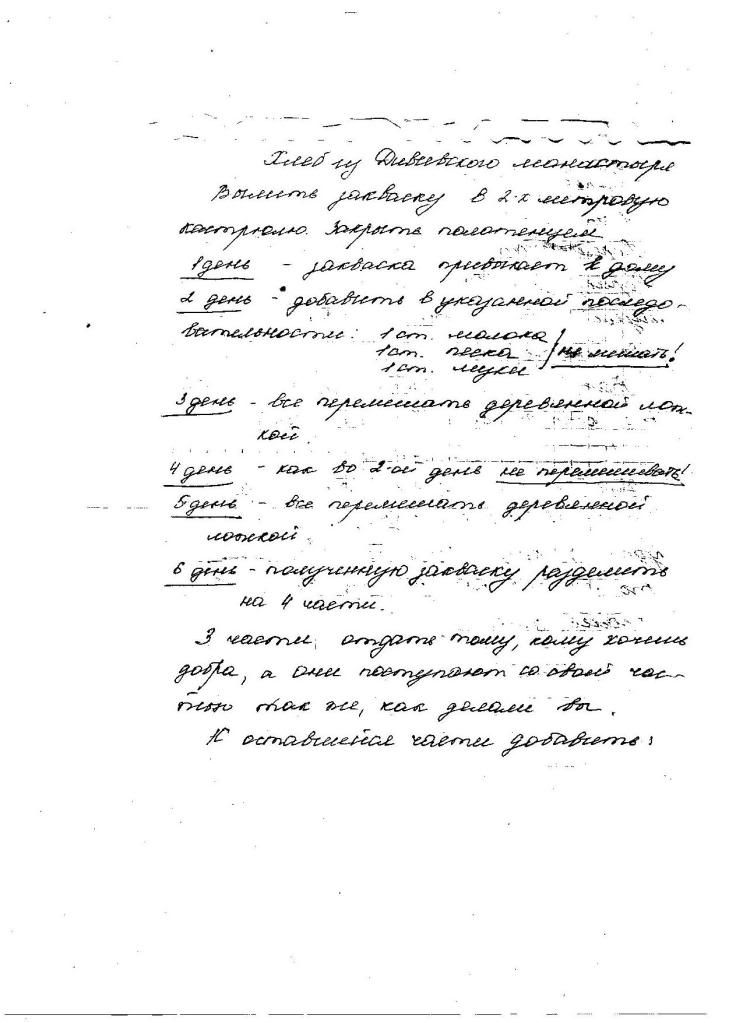 Хлеб из Дивеевского монастыря
Вылить закваску в 2-х литровую
кастрюлю. Закрыть полотенцем
1 день - закваска привыкает к дому
2 день - добавить в указанной последо-
вательности: 1 ст. молока
1 ст. песка
не мешать!
1 ст. муки
3 день - все перемешать деревянной лож-
кой.
4 день - как во 2-ой день не перемешивать!
5 день - все перемешать деревянной
ложкой.
6 день - полученную закваску разделить
на 4 части.
3 части отдать тому, кому хочешь
добра, а они поступают со своей час-
тью так же, как делали вы.
К оставшейся части добавить: